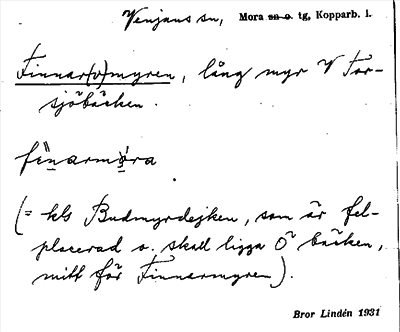 Venjans sn, Mora sn o. tg, Kopparb. l.
Finnar(o)myren, lång myr V Tor-
sjöbäcken.
(= kls Budmyrdejken, som är fel-
placerad o. skall ligga Ö bäcken,
mitt för Finnarmyren).
Bror Lindén 1931